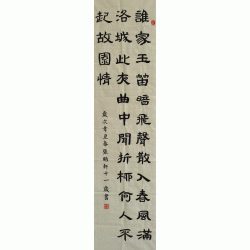 誰家玉笛暗飛聲散入春風滿
洛城此夜曲中聞折柳何人不
起故園情
歲次辛丑春張鵬軒十一歲書